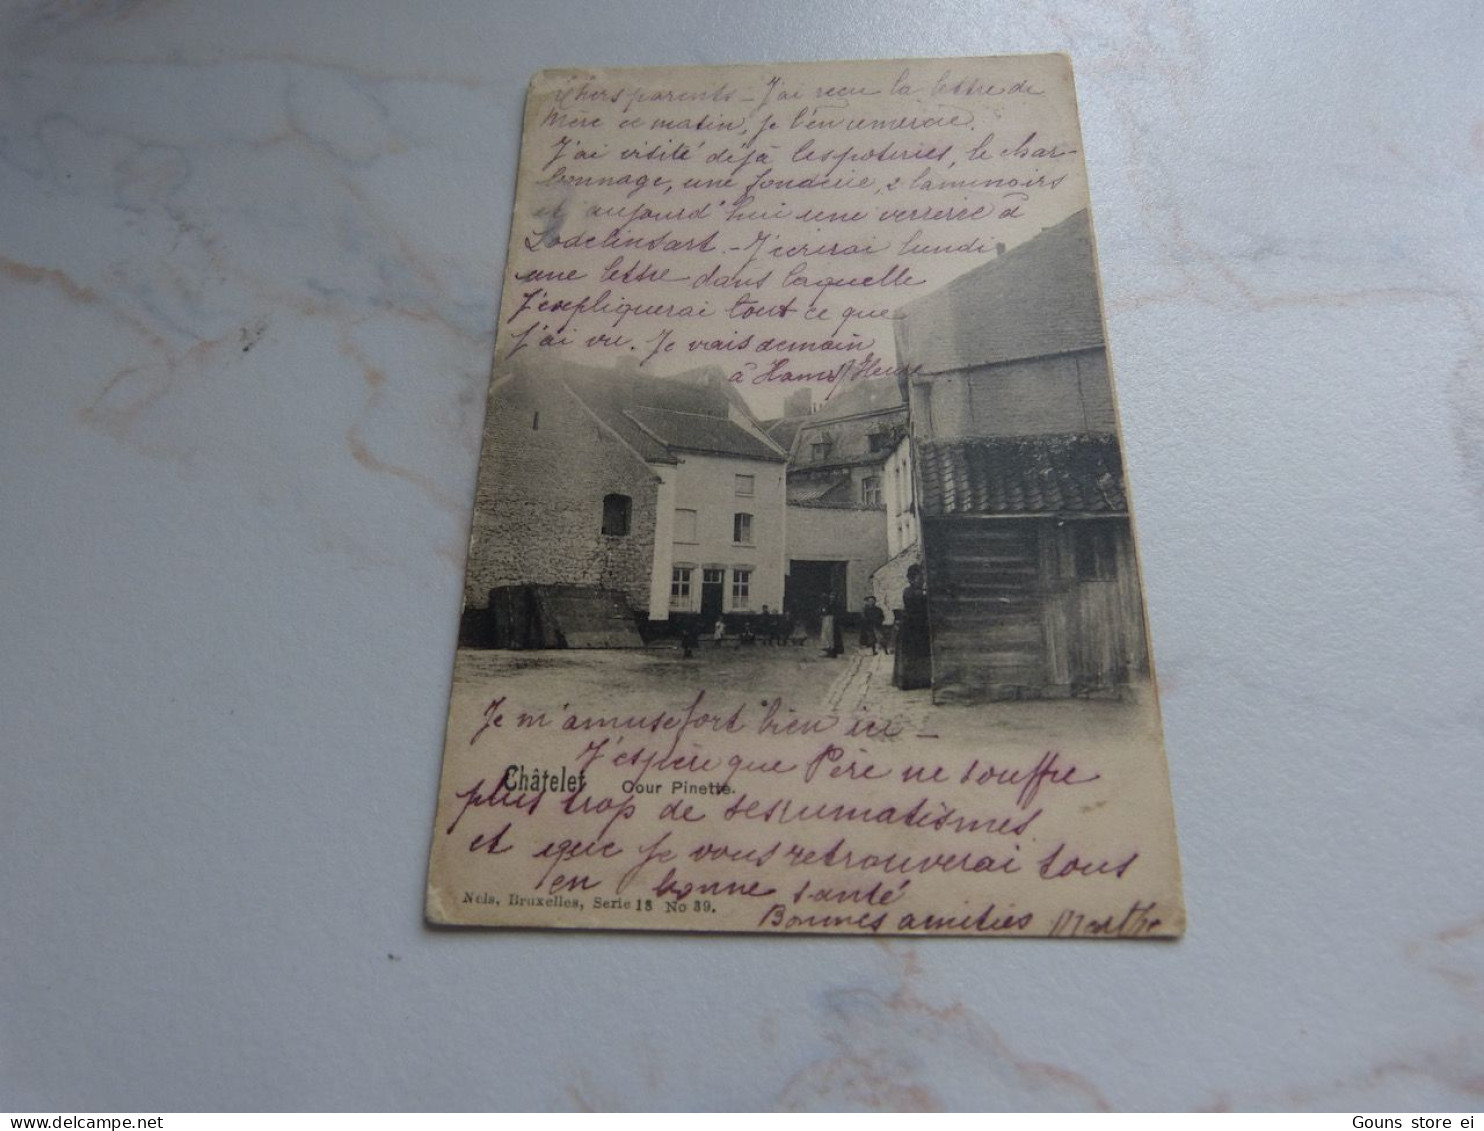 Chers parents - J'ai reçu la lettre de
Mère ce matin, je l'en remercie.
J'ai visité déjà les poteries, le char-
bonnage, une fonderie, 2 laminoirs
et aujourd'hui une verrerie à
Lodelinsart. - J'écrirai lundi
une lettre dans laquelle
J'expliquerai tout ce que
j'ai vu. Je vais demain
à Ham s/ Heure
Je m'amuse fort bien ici -
J'espère que Père ne souffre
Châtelet Cour Pinette.
plus trop de ses rumatismes
et que je vous retrouverai tous
en bonne santé
Nels, Bruxelles, Serie 13 No 39.
Bonnes amitiés Marthe
Gouns store ei